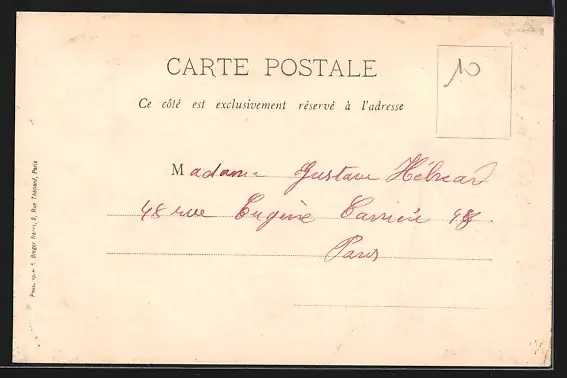 CARTE POSTALE
10
Ce côté est exclusivement réservé à l'adresse
Madame Gustave Hébrard
48 rue Eugène Carrière 48
Paris
Berger frères, 9, Rue Thénard, Paris